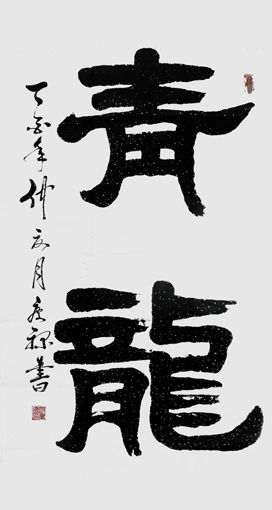 青龍
丁酉年仲夏月
書